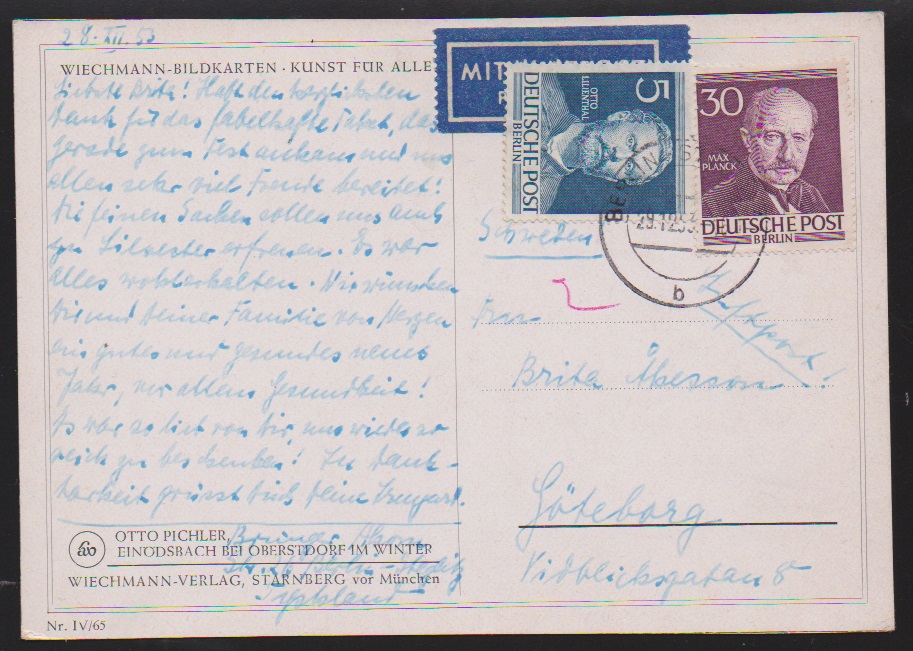 28. XII. 53
WIECHMANN-BILDKARTEN · KUNST FÜR ALLE
Liebste Brita! Hab den herzlichsten
Dank für das fabelhafte Paket, das
gerade zum Fest ankam und uns
allen sehr viel Freude bereitet!
Die feinen Sachen sollen uns auch
zu Silvester erfreuen. Es war
alles wohlerhalten. Wir wünschen
Dir und Deiner Familie von Herzen
ein gutes und gesundes neues
Jahr, vor allem Gesundheit!
Es war so lieb von Dir, uns wieder so
reich zu beschenken! In Dank-
barkeit grüsst Dich Deine Irmgard.
OTTO PICHLER,
EINÖDSBACH BEI OBERSTDORF IM WINTER
Str. 26 Berlin-Steglitz
Tyskland
WIECHMANN-VERLAG, STARNBERG vor München
Nr. IV/65
MIT
5
OTTO LILIENTHAL
DEUTSCHE POST
BERLIN
30
MAX
PLANCK
DEUTSCHE POST
BERLIN
BERLIN
29.12.53
b
Schweden
Luftpost!
Frau
Brita
Göteborg
Vidblicksgatan 8